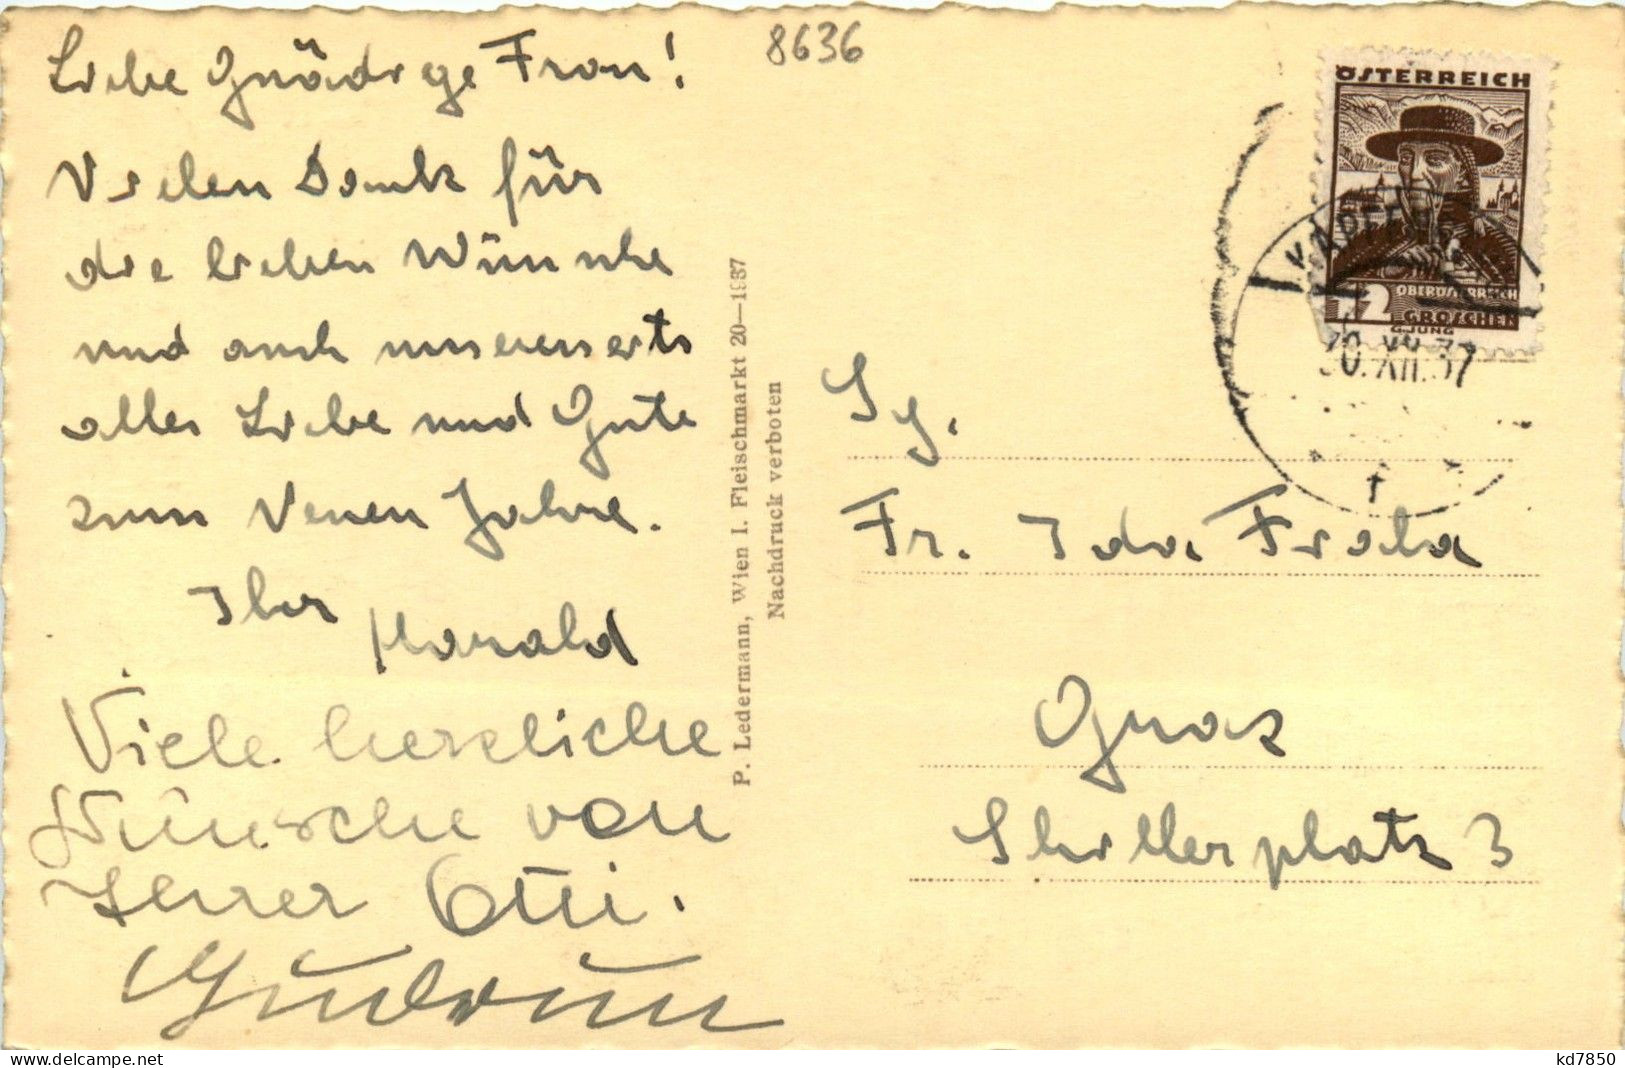 8636
Liebe Gnädige Frau!
Vielen Dank für
die lieben Wünsche
und auch unsererseits
alles Liebe und Gute
zum Neuen Jahre.
Ihr Harald
Viele herzliche
Wünsche von
Ihrer Otti.
Gudrun
P. Ledermann, Wien I. Fleischmarkt 20—1937
Nachdruck verboten
ÖSTERREICH
OBERÖSTERREICH
12 GROSCHEN
G.JUNG
KAPFENB
30.XII.37
Fr. Ida
Graz
Schillerplatz 3
www.delcampe.net
kd7850